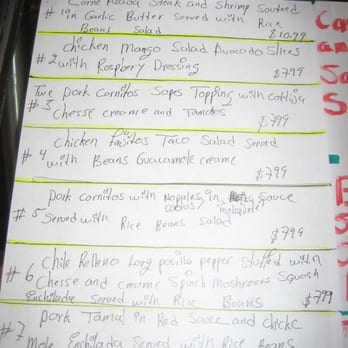 Carne Asada Steak and Shrimp Sauteed
#1 in Garlic Butter served with Rice
Beans Salad $10.99
chicken Mango Salad Avocado Slices
#2 with Raspbery Dressing $7.99
Two pork Carnitos Sopes Topping with cotija
#3 Chesse creame and Tomatos $7.99
Chicken Fajitos Taco Salad Served
#4 with Beans Guacamole creame $7.99
pork Carnitos with Nopales in Sauce
cactus
#5 Served with Rice Beans Salad $7.99
Chile Relleno Larg posillo pepper Stuffed with
#6 Chesse and creame Spinch Mashrooms Squash
Enchilada Served with Rice Beans $7.99
pork Tamal in Red Sauce and chicke
#7 Mole Enchilada Served with Rice Beans